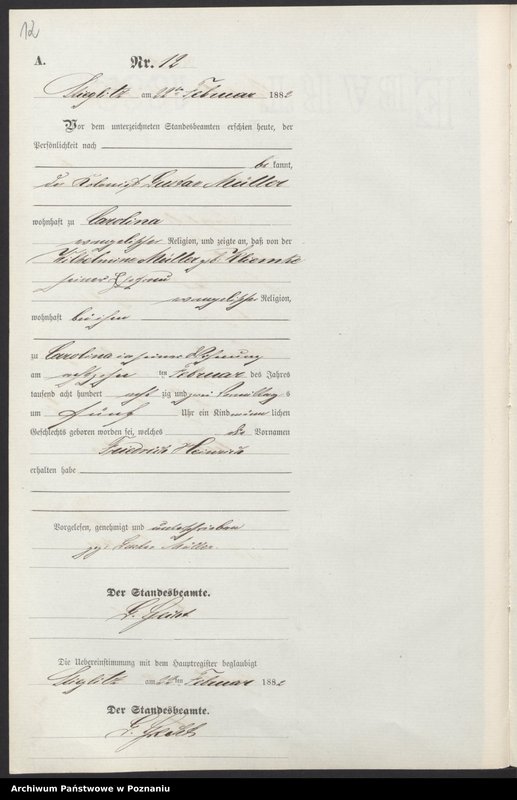 12
A.
Nr. 12
am 22ten Februar 1882
Vor dem unterzeichneten Standesbeamten erschien heute, der
Persönlichkeit nach
be kannt,
der Kolonist Gustav Müller
wohnhaft zu Carolina
evangelischer Religion, und zeigte an, daß von der
Wilhelmine Müller geb.
seiner Ehefrau
evangelischer Religion,
wohnhaft bei ihm
zu Carolina in seiner Wohnung
am achtzehn ten Februar des Jahres
tausend acht hundert acht zig und zwei Vormittag s
um fünf Uhr ein Kind männ lichen
Geschlechts geboren worden sei, welches die Vornamen
Friedrich Heinrich
erhalten habe
Vorgelesen, genehmigt und unterschrieben
gez. Gustav Müller
Der Standesbeamte.
Die Uebereinstimmung mit dem Hauptregister beglaubigt
am 22 ten Februar 1882
Der Standesbeamte.
Archiwum Państwowe w Poznaniu